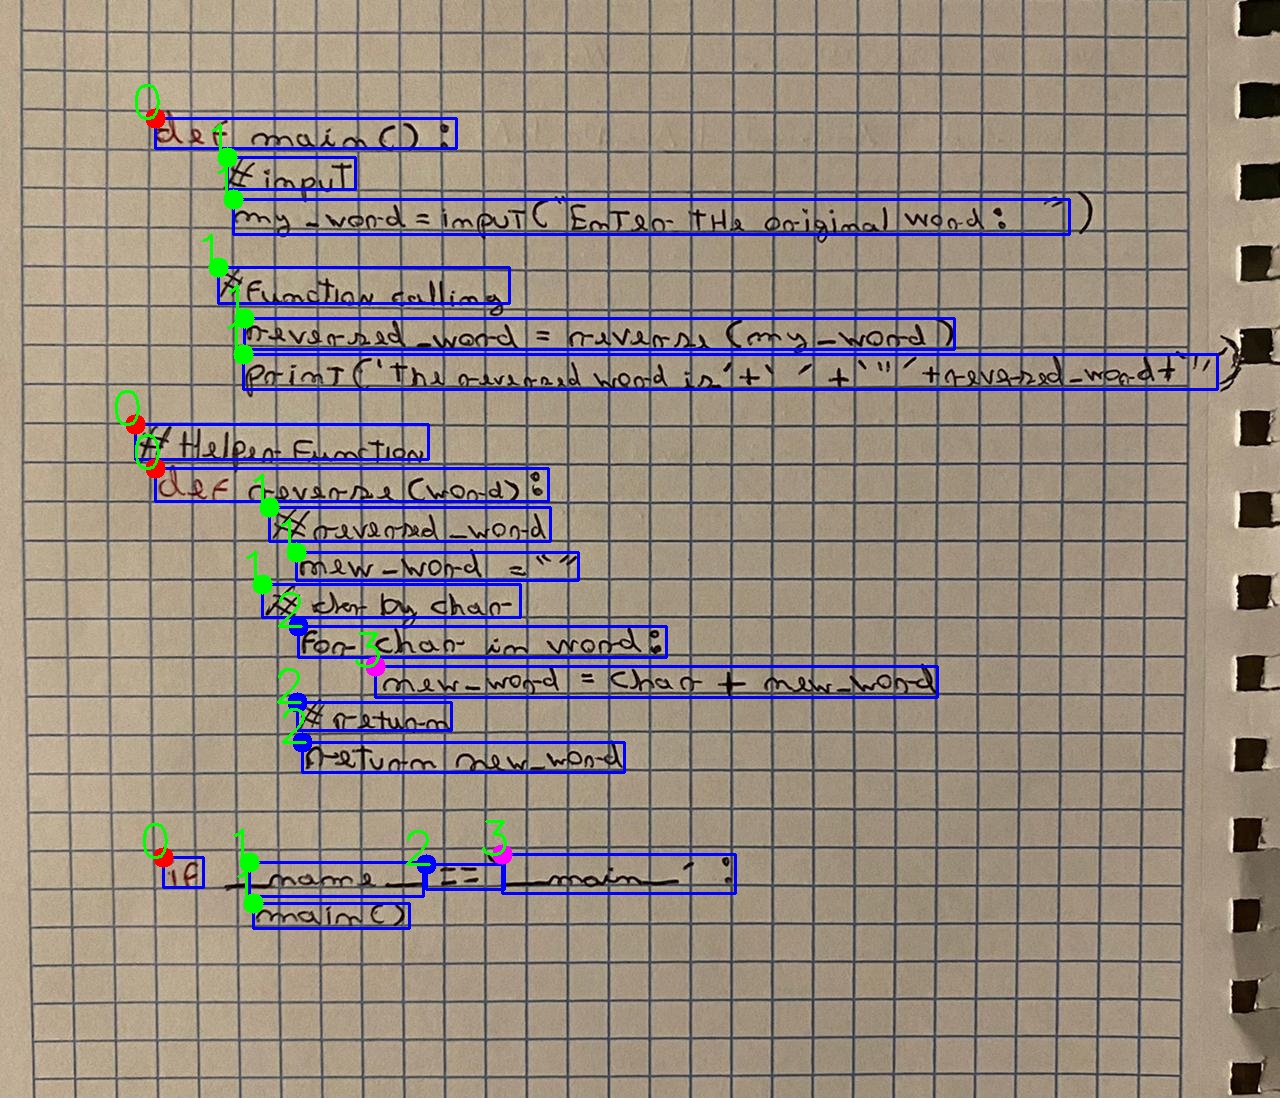 def main():
# input
my_word = input("Enter the original word: ")
#function calling
reversed_word = reverse(my_word)
print('The reversed word is'+' '+'"'+reversed_word+'"')
# Helper Function
def reverse(word):
# reversed_word
new_word = ""
# char by char
for char in word:
new_word = char + new_word
# return
return new_word
if __name__ == '__main__':
main()